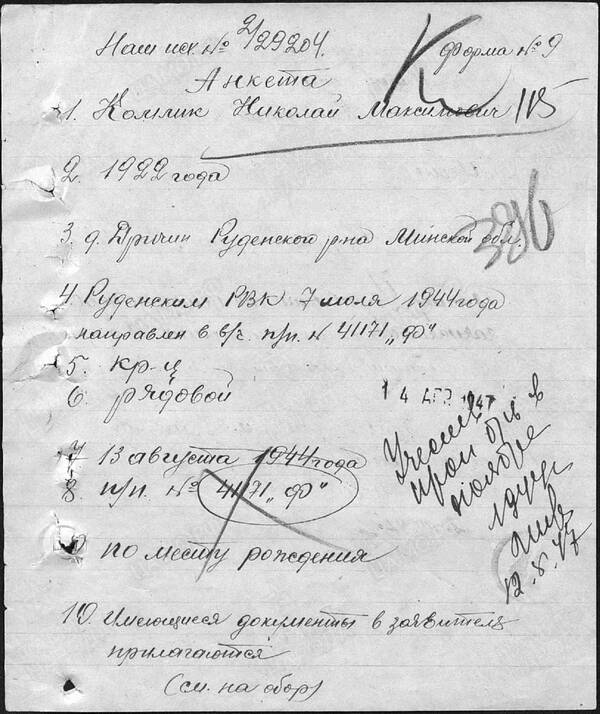 Наш исх № 2/29204. Форма № 9
Анкета
1. Комлик Николай Максимович 115
2. 1922 года
396
3. д. Дричин Руденского р-на Минской обл.
4. Руденским РВК 7 июля 1944 года
направлен в в/ч. п/п. № 41171 „Ф"
5. кр-ц
6. рядовой
14 АПР 1947
7. 13 августа 1944 года
8. п/п. № 41171 „Ф"
Учтен
ноябре
12.8.47
9. по месту рождения
10. Имеющиеся документы в заявителя
прилагаются
(см. на обор)